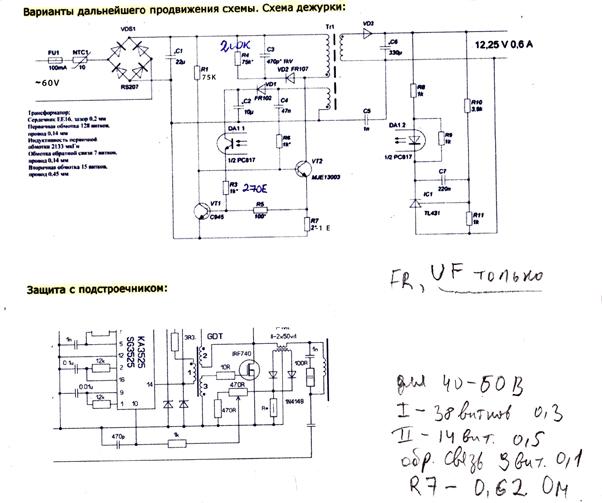 Варианты дальнейшего продвижения схемы. Схема дежурки:
VDS1
Tr1
VD3
FU1
100mA
NTC1
10
RS207
~60V
C1
22µ
R1
75K
200K
R4
75k*
C3
470p* 1kV
VD2 FR107
VD1
FR102
C2
10µ
C4
47n
C5
1n
C6
330µ
12,25 V 0,6 A
R8
1k
R10
3.9k
Трансформатор:
Сердечник EE16, зазор 0,2 мм
Первичная обмотка 128 витков,
провод 0,14 мм
Индуктивность первичной
обмотки 2133 мкГн
Обмотка обратной связи 7 витков,
провод 0,14 мм
Вторичная обмотка 15 витков,
провод 0,45 мм
DA1 1
1/2 PC817
R6
1k*
VT2
MJE13003
DA1 2
1/2 PC817
R9
1k
C7
220n
IC1
TL431
R11
1k
R3
1k*
270E
VT1
C945
R5
100*
R7
2*-1 E
FR, UF только
Защита с подстроечником:
1n
0.1µ
12k
0.01µ
12k
KA3525
SG3525
5
12
2
16
9
1
14
10
3R3
GDT
1
2
3
10R
IRF740
470R
470R
R*
1N4148
II-2x50vit
1n
100R
470p
1k
для 40-50В
I - 38 витков 0,3
II - 14 вит. 0,5
обр. связь 3 вит. 0,1
R7 - 0,62 Ом